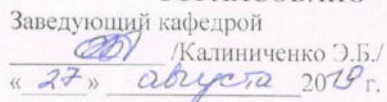 Заведующий кафедрой
/Калиниченко Э.Б./
« 27 » августа 2019 г.